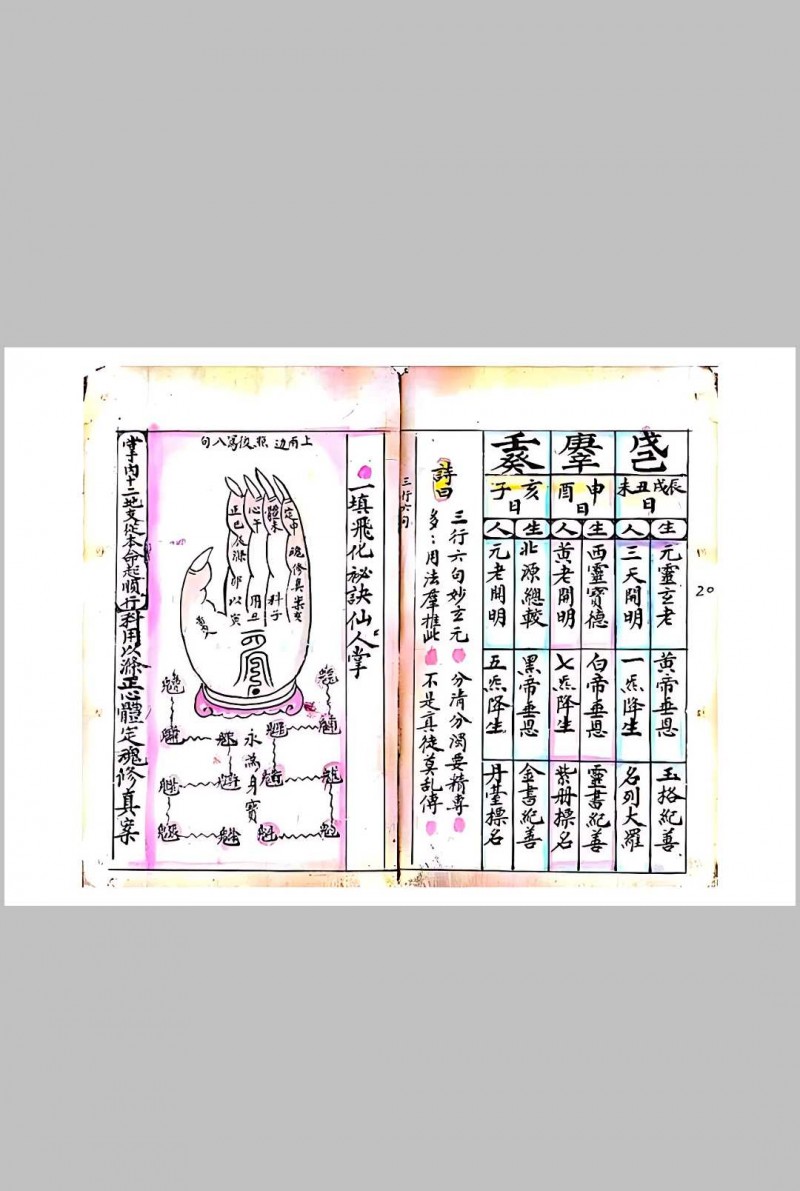 戊己
辰戌丑未日
生人
元靈玄老 黃帝垂恩 玉格紀善
三天開明 一炁降生 名列大羅
庚辛
申酉日
生人
西靈寶德 白帝垂恩 靈書紀善
黃老開明 七炁降生 紫册標名
壬癸
亥子日
生人
北源總較 黑帝垂恩 金書紀善
元老開明 五炁降生 丹臺標名
20
詩曰
三行六句妙玄元 分清分濁要精專
多:用法羣推此 不是真徒莫乱傳
三行六句
一填飛化秘訣仙人掌
上兩边照後寫八句
定申 魂修真案亥
體未 科子
心午 用丑
正巳 後滌卯以寅
永為身寶
魁
掌内十二地支從本命起順行科用以滌正心體定魂修真案